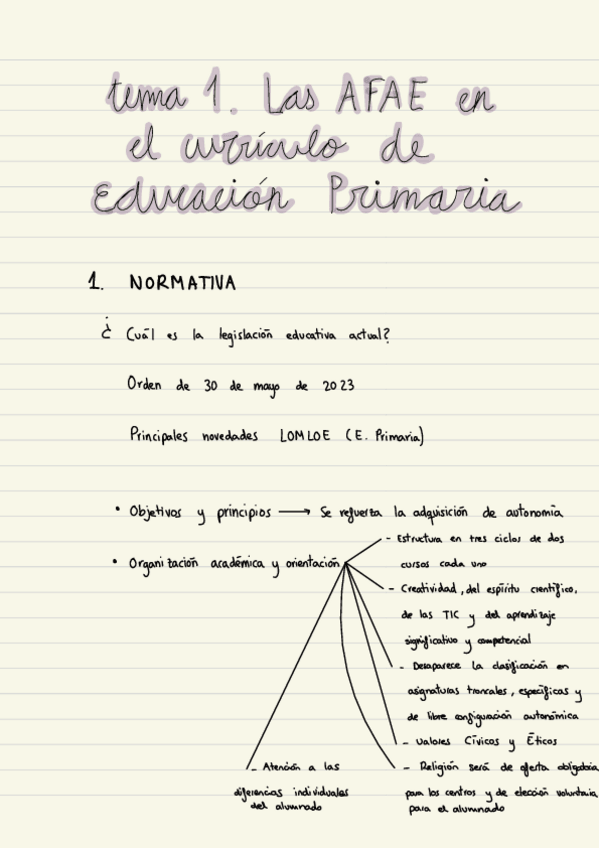 tema 1. Las AFAE en
el currículo de
Educación Primaria
1. NORMATIVA
¿ Cuál es la legislación educativa actual?
Orden de 30 de mayo de 2023
Principales novedades LOMLOE (E. Primaria)
• Objetivos y principios ⟶ Se refuerza la adquisición de autonomía
• Organización académica y orientación
- Estructura en tres ciclos de dos
cursos cada uno
- Creatividad, del espíritu científico,
de las TIC y del aprendizaje
significativo y competencial
- Desaparece la clasificación en
asignaturas troncales, específicas y
de libre configuración autonómica
- Valores Cívicos y Éticos
- Religión será de oferta obligatoria
para los centros y de elección voluntaria
para el alumnado
- Atención a las
diferencias individuales
del alumnado